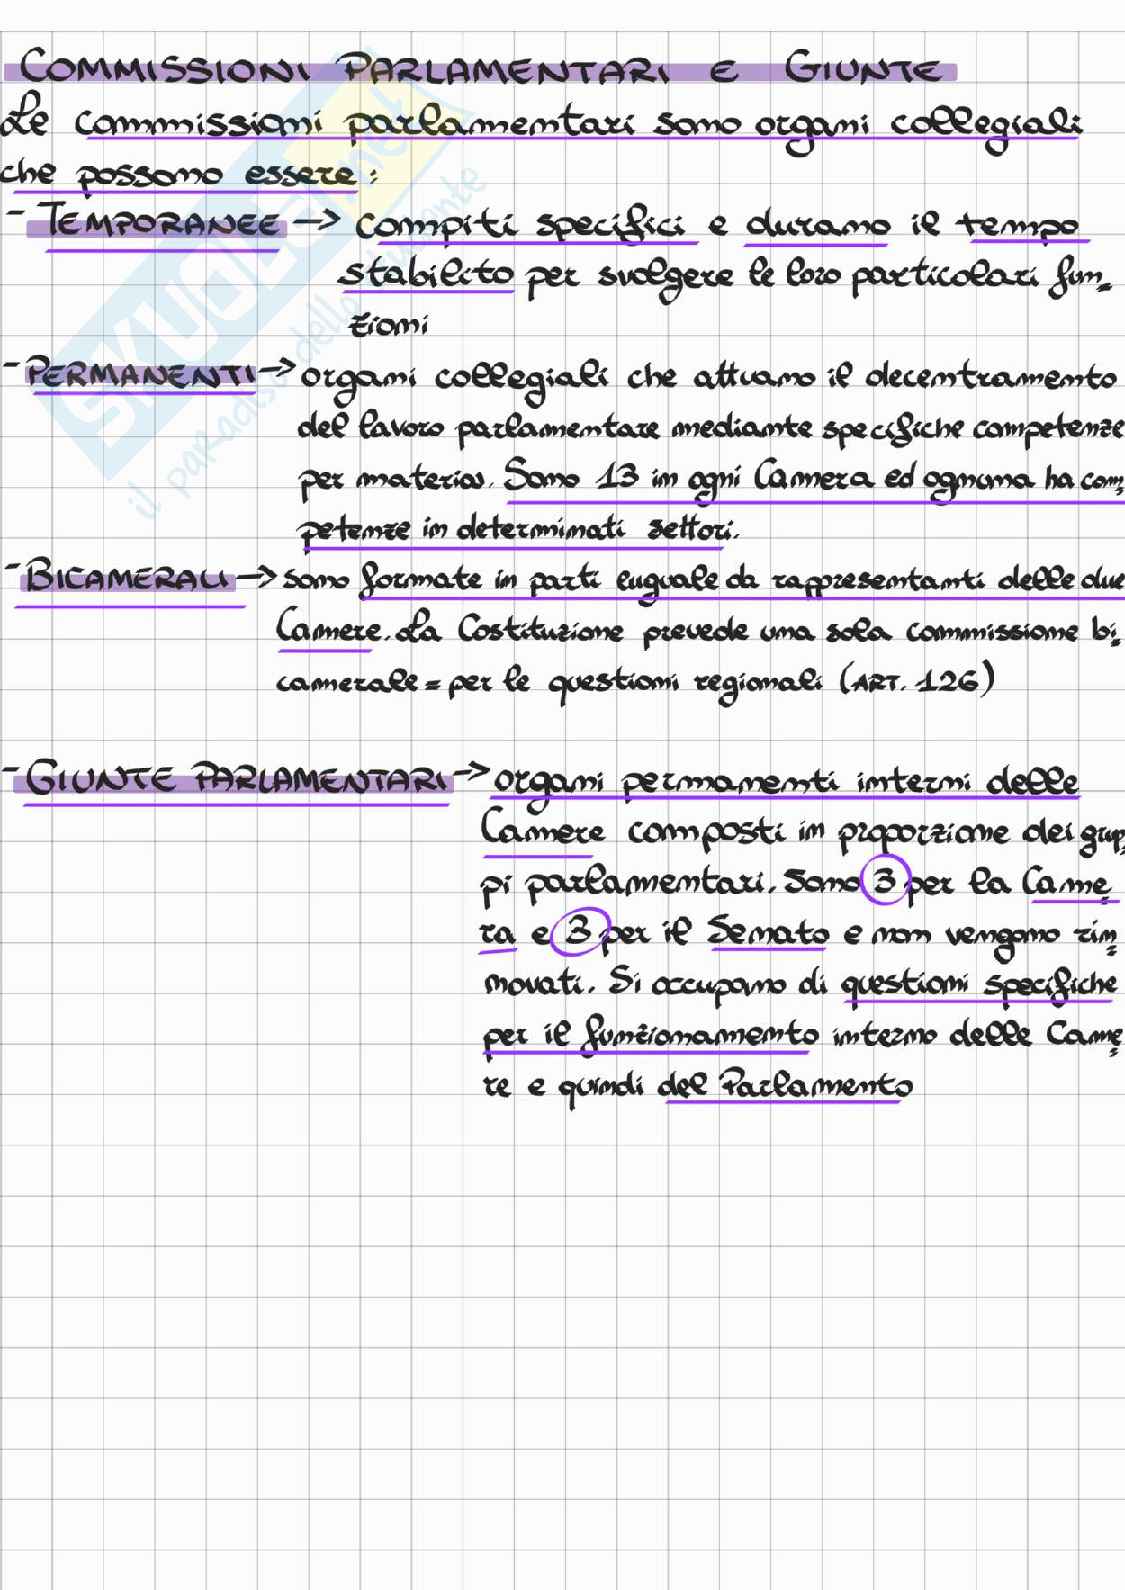 COMMISSIONI PARLAMENTARI E GIUNTE
Le commissioni parlamentari sono organi collegiali
che possono essere:
- TEMPORANEE → compiti specifici e durano il tempo
stabilito per svolgere le loro particolari fun=
zioni
- PERMANENTI → organi collegiali che attuano il decentramento
del lavoro parlamentare mediante specifiche competenze
per materia. Sono 13 in ogni Camera ed ognuna ha com=
petenze in determinati settori.
- BICAMERALI → sono formate in parti euguale da rappresentanti delle due
Camere. La Costituzione prevede una sola commissione bi=
camerale = per le questioni regionali (ART. 126)
- GIUNTE PARLAMENTARI → organi permanenti interni delle
Camere composti in proporzione dei grup=
pi parlamentari. Sono 3 per la Came=
ra e 3 per il Senato e non vengono rin=
novati. Si occupano di questioni specifiche
per il funzionamento interno delle Came=
re e quindi del Parlamento
SKUOLA.net
il paradiso dello studente